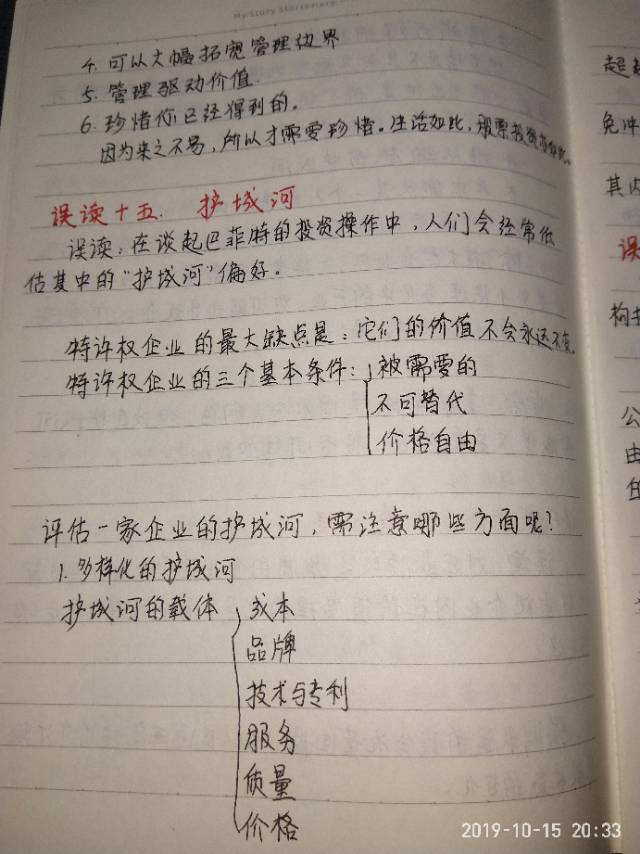 My Story Starts Here
4. 可以大幅拓宽管理边界
5. 管理驱动价值.
6. 珍惜你已经得到的。
因为来之不易，所以才需要珍惜。生活如此，股票投资亦如此。
误读十五. 护城河
误读：在谈起巴菲特的投资操作中，人们会经常低
估其中的“护城河”偏好。
特许权企业的最大缺点是：它们的价值不会永远不变
特许权企业的三个基本条件：被需要的
不可替代
价格自由
评估一家企业的护城河，需注意哪些方面呢？
1. 多样化的护城河
护城河的载体 成本
品牌
技术与专利
服务
质量
价格
超
免冲
其内
误
构
公
由
的
2019-10-15 20:33